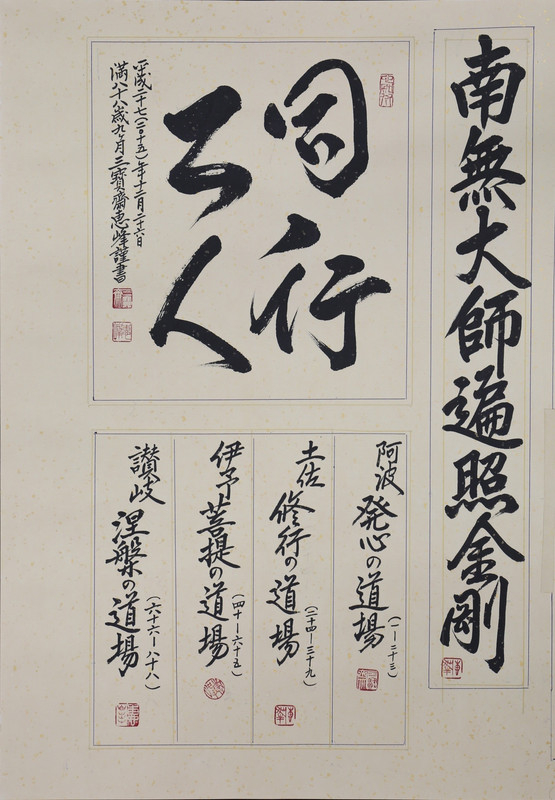 南無大師遍照金剛
同行
二人
平成二十七(二〇十五)年十二月二十六日
満八十八歳九ヶ月三寶齋惠峰謹書
阿波 発心の道場(一ー二十三)
土佐 修行の道場(二十四ー三十九)
伊予 菩提の道場(四十ー六十五)
讃岐 涅槃の道場(六十六ー八十八)